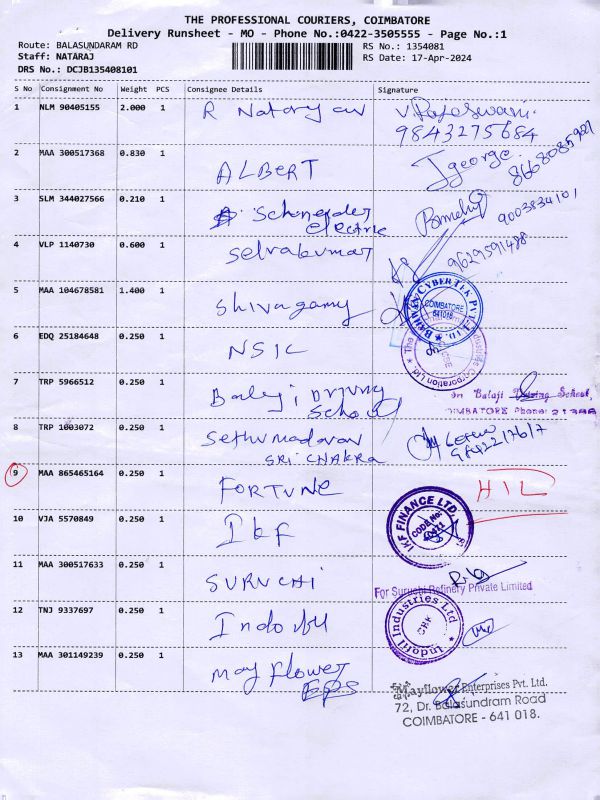 THE PROFESSIONAL COURIERS, COIMBATORE
Delivery Runsheet - MO - Phone No.:0422-3505555 - Page No.:1
Route: BALASUNDARAM RD
RS No.: 1354081
Staff: NATARAJ
RS Date: 17-Apr-2024
DRS No.: DCJB135408101
S No Consignment No Weight PCS Consignee Details Signature
1 NLM 90405155 2.000 1 R
9843275684
2 MAA 300517368 0.830 1 ALBERT George
8668085927
3 SLM 344027566 0.210 1 Schneider
electric
9003834101
4 VLP 1140730 0.600 1 Selvakumar
9629591488
5 MAA 104678581 1.400 1 Shivagamy
COIMBATORE
641018
6 EDQ 25184648 0.250 1 NSIC
7 TRP 5966512 0.250 1 Balaji Driving
School
Sri Balaji Driving School,
COIMBATORE Phone:
8 TRP 1003072 0.250 1 Sethumadavan
SRI CHAKRA
9 MAA 865465164 0.250 1 FORTUNE
10 VJA 5570849 0.250 1 Ikf
IKF FINANCE LTD.
CODE No:
11 MAA 300517633 0.250 1 SURUCHI
For Suruchi Refinery Private Limited
12 TNJ 9337697 0.250 1
Indofil Industries Ltd
CBK
13 MAA 301149239 0.250 1 May flower
EPS
Mayflower Enterprises Pvt. Ltd.
72, Dr. Balasundram Road
COIMBATORE - 641 018.